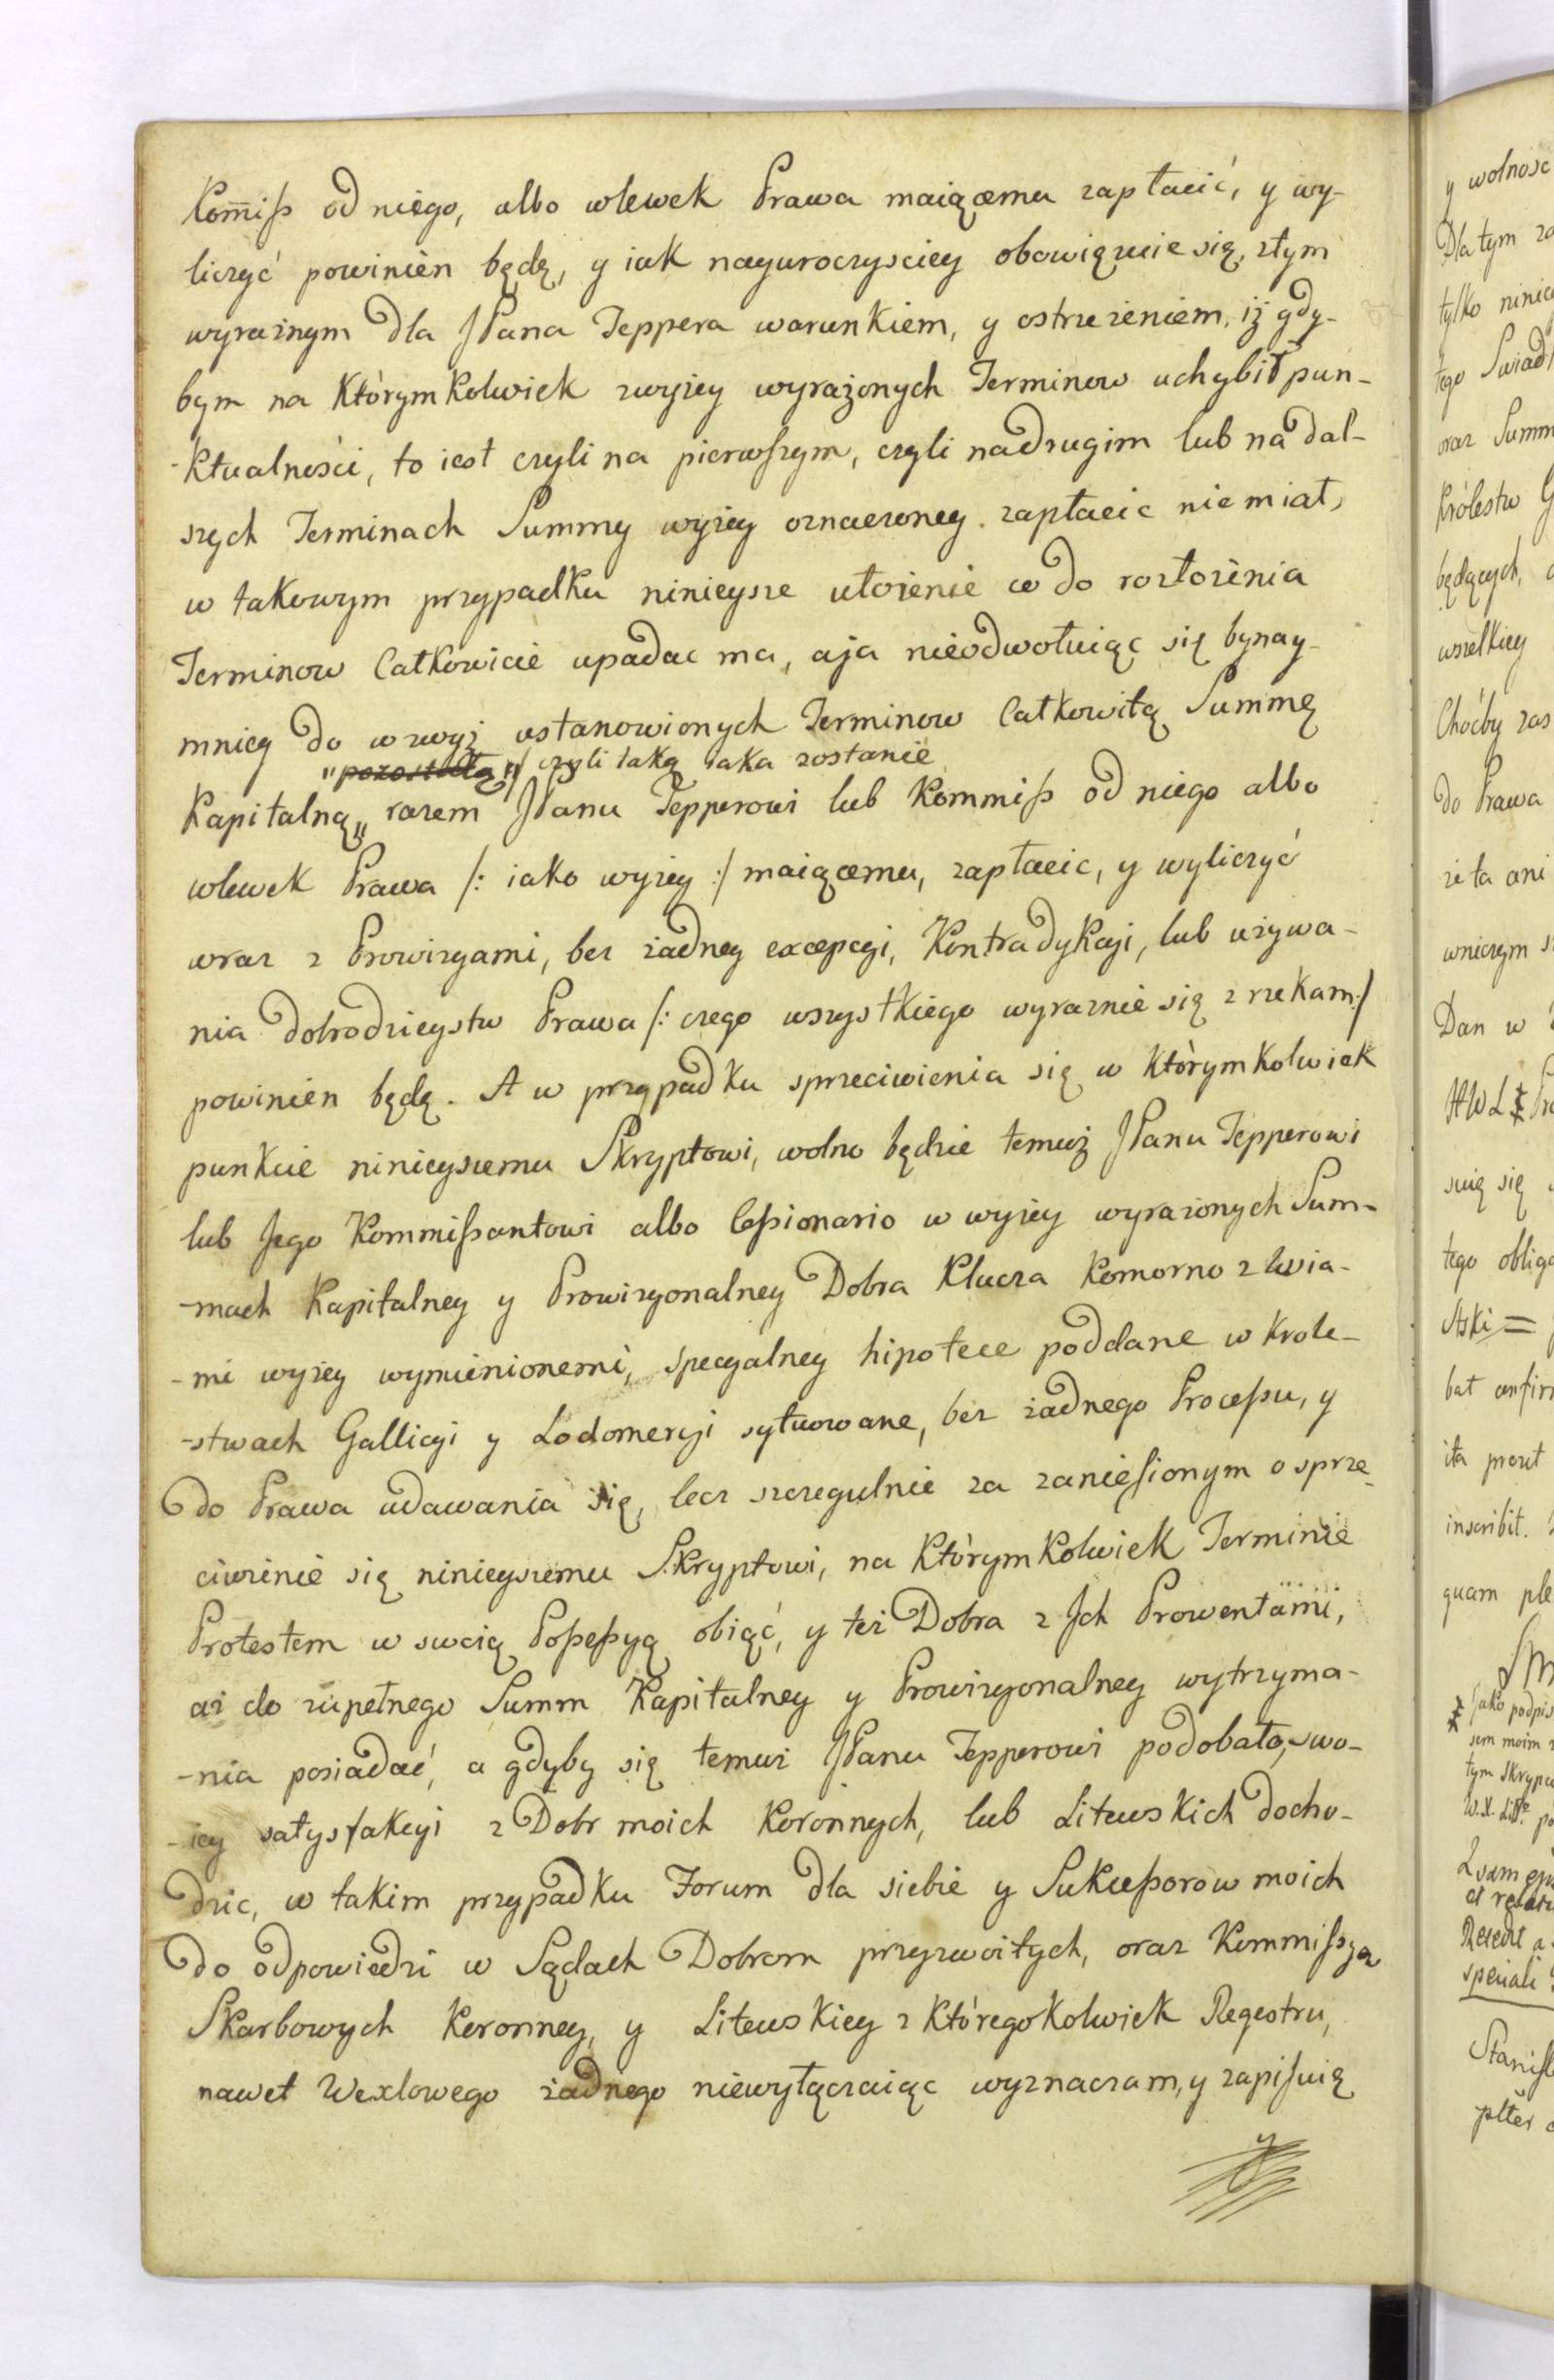 Kom̄iß od niego, albo wlewek Prawa maiącemu zapłacić, y wy-
liczyć powinien będę, y iak nayuroczysciey obowiązuie się, z tym
wyraźnym dla JPana Teppera warunkiem, y ostrzeżeniem, iż gdy-
bym na którymkolwiek zwyżey wyrażonych Terminow uchybił pun-
-ktualności, to iest czyli na pierwszym, czyli na drugim lub na dal-
szych Terminach Summy wyżey oznaczoney zapłacic nie miał,
w takowym przypadku ninieysze ułożenie co do rozłożenia
Terminow Całkowicie upadac ma, a ja nieodwołuiąc się bynay-
mniey do wzwyż ustanowionych Terminow Całkowitą Summę
"pozostałą"/ czyli taką iaka zostanie
Kapitalną,, razem JPanu Tepperowi lub Kommiß od niego albo
wlewek Prawa /: iako wyżey :/ maiącemu, zapłacic, y wyliczyć
wraz z Prowizyami, bez żadney excepcyi, Kontradykcji, lub używa-
nia dobrodzieystw Prawa /: czego wszystkiego wyraznie się zrzekam :/
powinien będę. A w przypadku sprzeciwienia się w którymkolwiek
punkcie ninieyszemu Skryptowi, wolno będzie temuż JPanu Tepperowi
lub Jego Kommißantowi albo Ceßionario w wyżey wyrażonych Sum-
-mach Kapitalney y Prowizyonalney Dobra Klucza Komorno z Wsia-
-mi wyżey wymienionemi, specyalney hipotece poddane w Krole-
-stwach Gallicyi y Lodomeryi sytuowane, bez żadnego Proceßu, y
do Prawa udawania się, lecz szczegulnie za zaniesionym o sprze
ciwienie się ninieyszemu Skryptowi, na którymkolwiek Terminie
Protestem w swoią Poßeßyą obiąć, y też Dobra z Ich Prowentami,
aż do zupełnego Summ Kapitalney y Prowizyonalney wytrzyma-
-nia posiadać, a gdyby się temuż JPanu Tepperowi podobało, swo-
-iey satysfakcyi z Dobr moich Koronnych, lub Litewskich docho-
dzic, w takim przypadku Forum dla siebie y Sukceßorow moich
do odpowiedzi w Sądach Dobrom przyzwoitych, oraz Kommißya
Skarbowych Koronney, y Litewskiey z któregokolwiek Regestru,
nawet Wexlowego żadnego niewyłączaiąc wyznaczam, y zapisuię
y
y wolnosc
Dla tym
tylko niniey
tego Swiad
oraz Summ
Królestw G
będących,
wszelkiey
Choćby zas
do Prawa
że ta ani
wniczym
Dan w
suię się
tego oblig
bat confir
ita prout
inscribit.
quam ple
jako podpis
sem moim
tym Skrypc
speciali
Stanisl